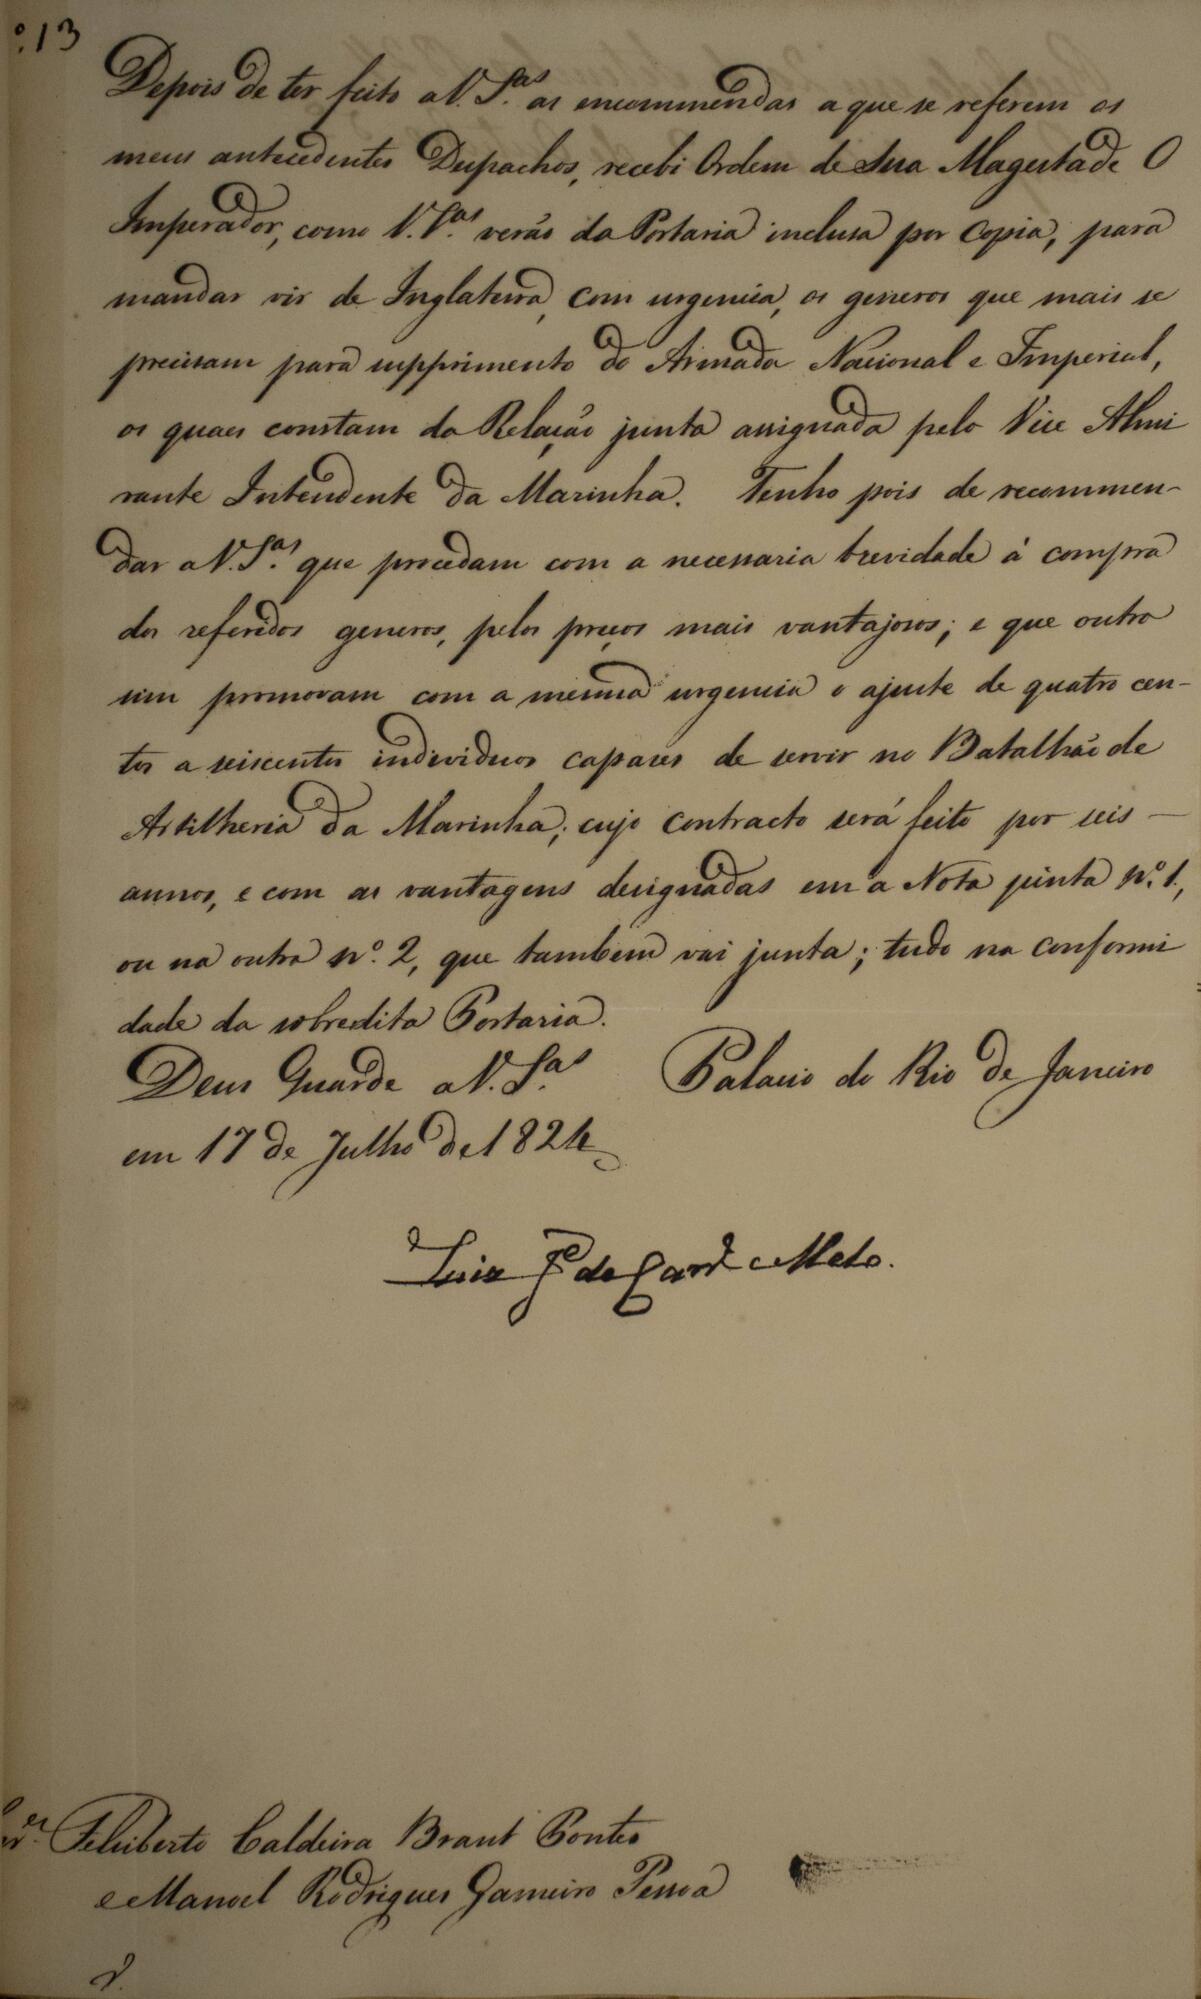 º. 13
Depois de ter feito a V. S.as as encommendas a que se referem os
meus antecedentes Despachos, recebi Ordem de Sua Magestade O
Imperador, como V. S.as verão da Portaria inclusa por copia, para
mandar vir de Inglaterra, com urgencia, os generos que mais se
precisam para supprimento da Armada Nacional e Imperial,
os quaes constam da Relação junta assignada pelo Vice Almi
rante Intendente da Marinha. Tenho pois de recommen-
dar a V. S.as que procedam com a necessaria brevidade á compra
dos referidos generos, pelos preços mais vantajosos; e que outro
sim promovam com a mesma urgencia o ajuste de quatro cen-
tos a seiscentos individuos capazes de servir no Batalhão de
Artilheria da Marinha; cujo contracto será feito por seis —
annos, e com as vantagens designadas em a Nota junta Nº. 1.,
ou na outra Nº. 2, que tambem vai junta; tudo na conformi
dade da sobredita Portaria.
Deus Guarde a V. S.as Palacio do Rio de Janeiro
em 17 de Julho de 1824
Luiz Je de Carvo e Melo.
Felisberto Caldeira Brant Pontes
e Manoel Rodrigues Gameiro Pessoa